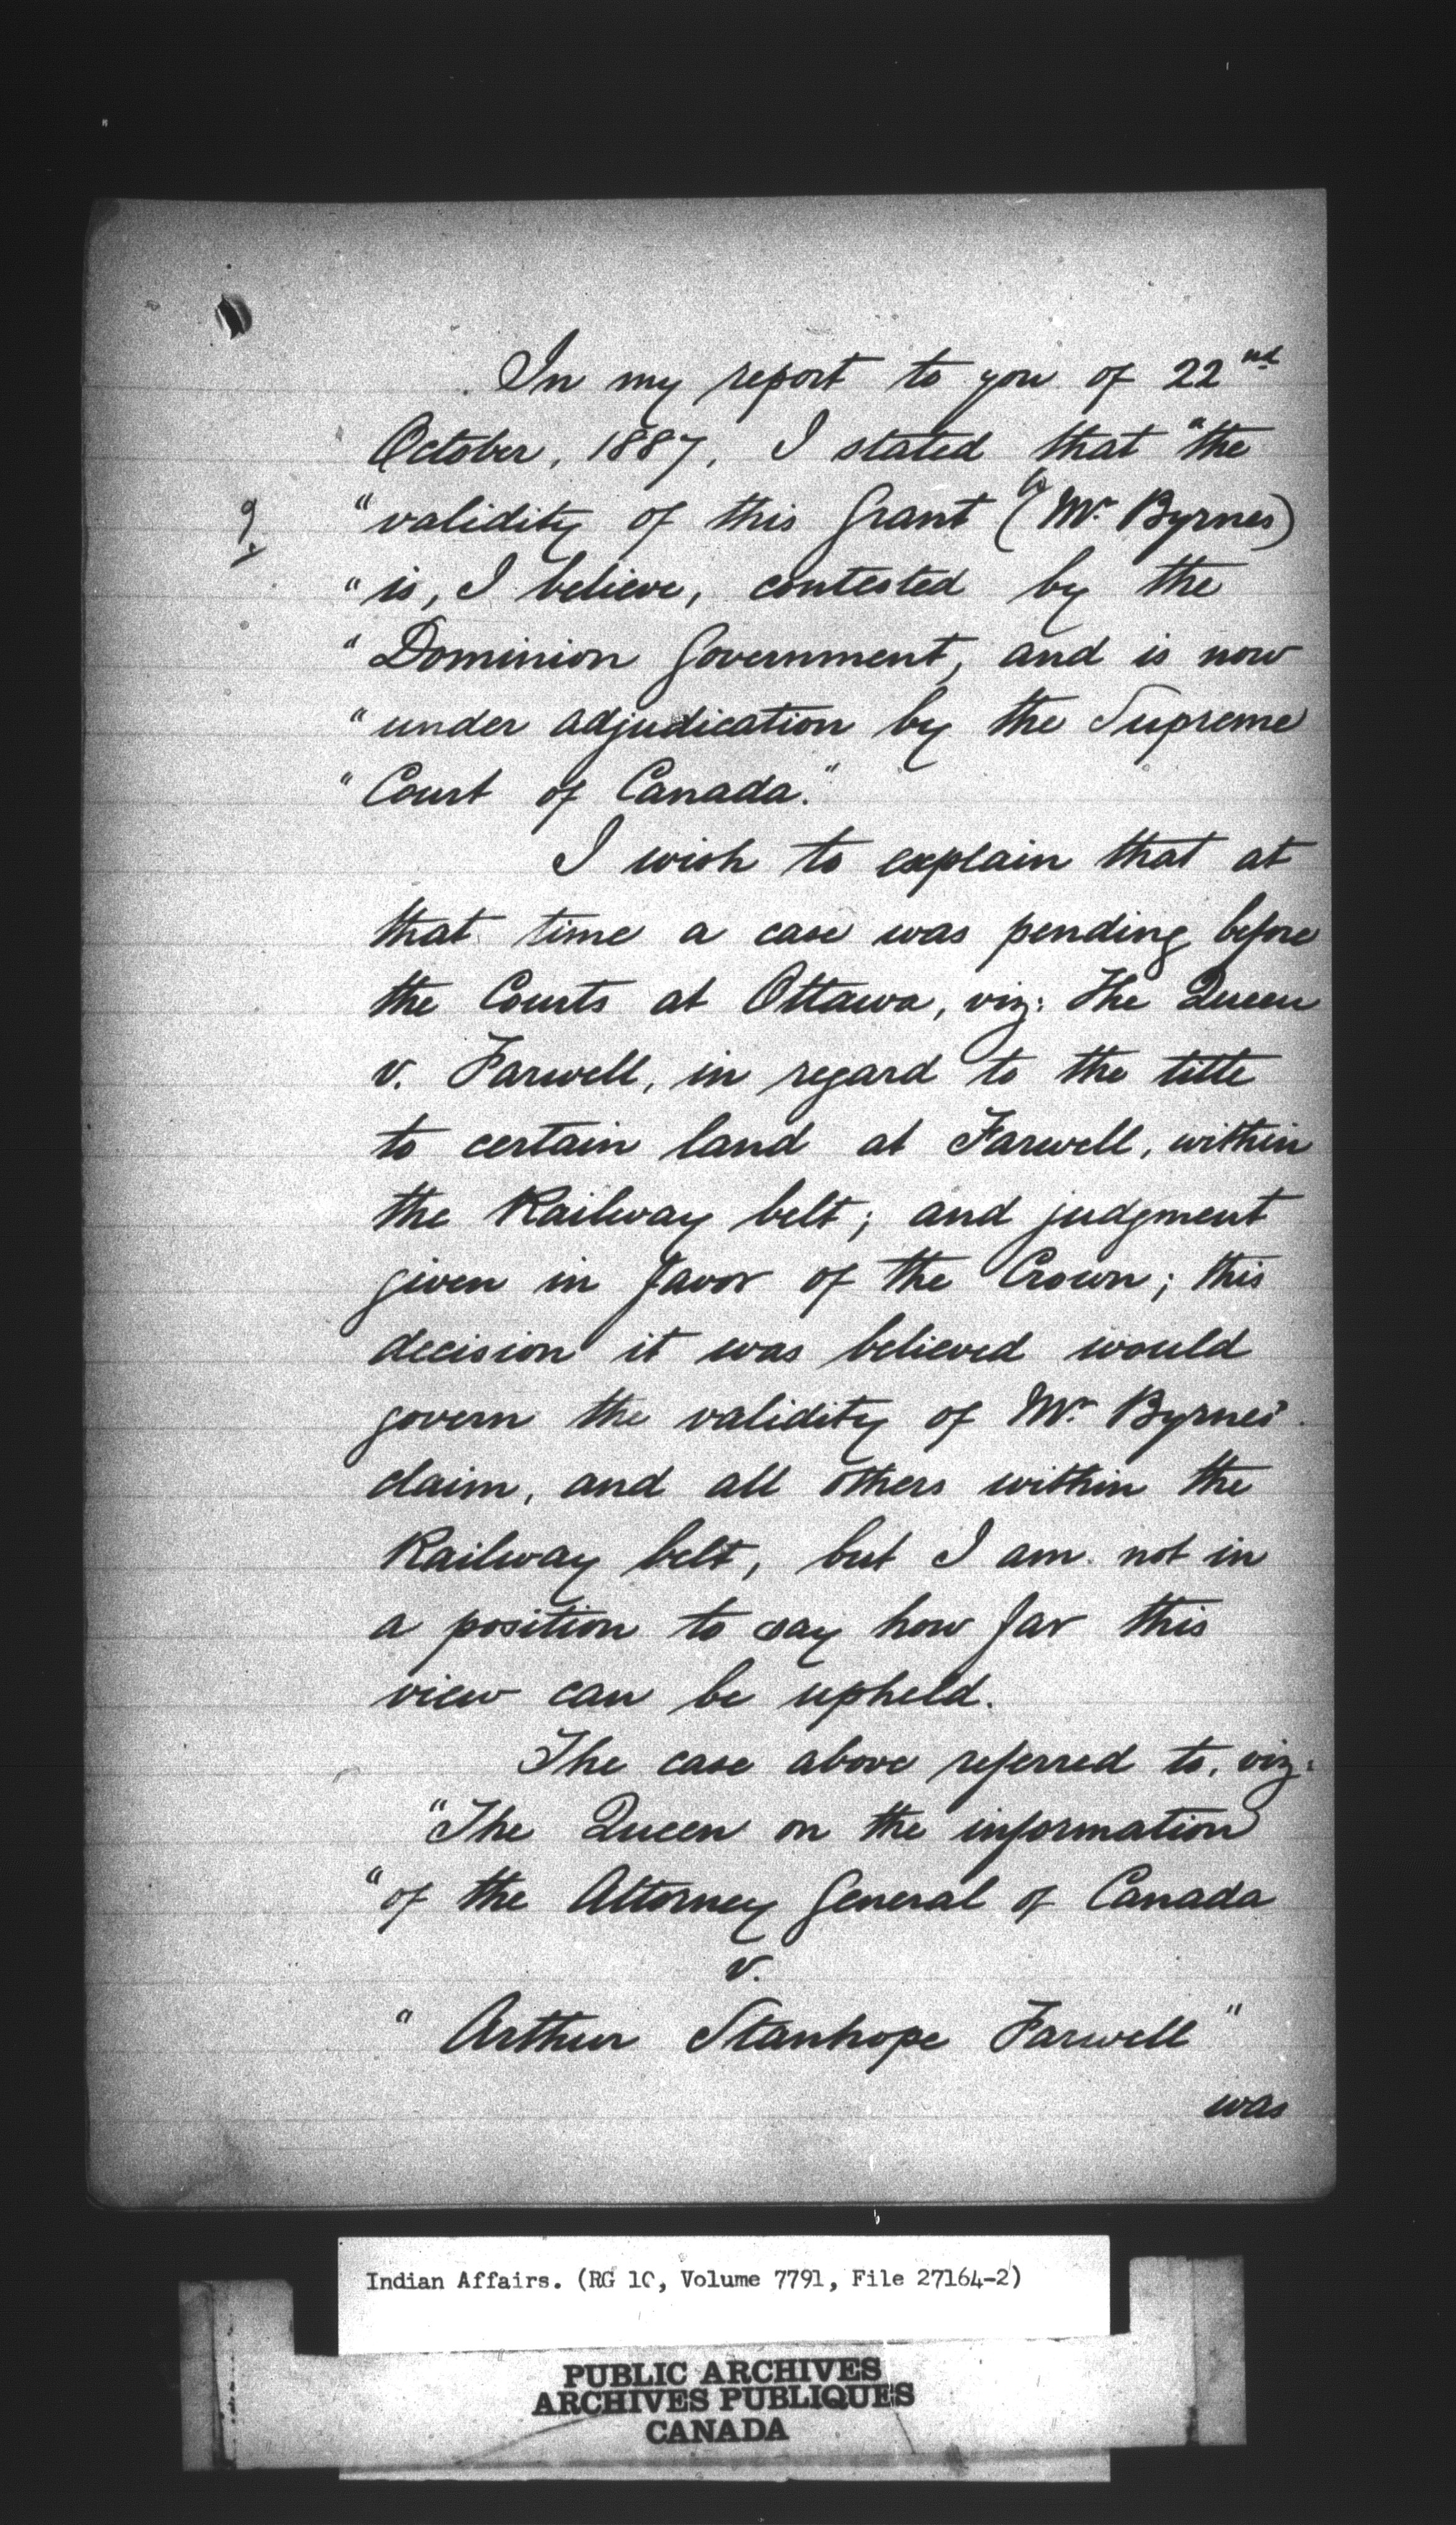 In my report to you of 22nd
October, 1887, I stated that "the
9.
"validity of this Grant (to Mr. Byrnes)
"is, I believe, contested by the
"Dominion Government, and is now
"under adjudication by the Supreme
"Court of Canada."
I wish to explain that at
that time a case was pending before
the Courts at Ottawa, viz: The Queen
v. Farwell, in regard to the title
to certain land at Farwell, within
the Railway belt; and judgment
given in favor of the Crown; this
decision it was believed would
govern the validity of Mr. Byrnes'
claim, and all others within the
Railway belt, but I am not in
a position to say how far this
view can be upheld.
The case above referred to, viz:
"The Queen on the information
"of the Attorney General of Canada
v.
"Arthur Stanhope Farwell"
was
Indian Affairs. (RG 10, Volume 7791, File 27164-2)
PUBLIC ARCHIVES
ARCHIVES PUBLIQUES
CANADA